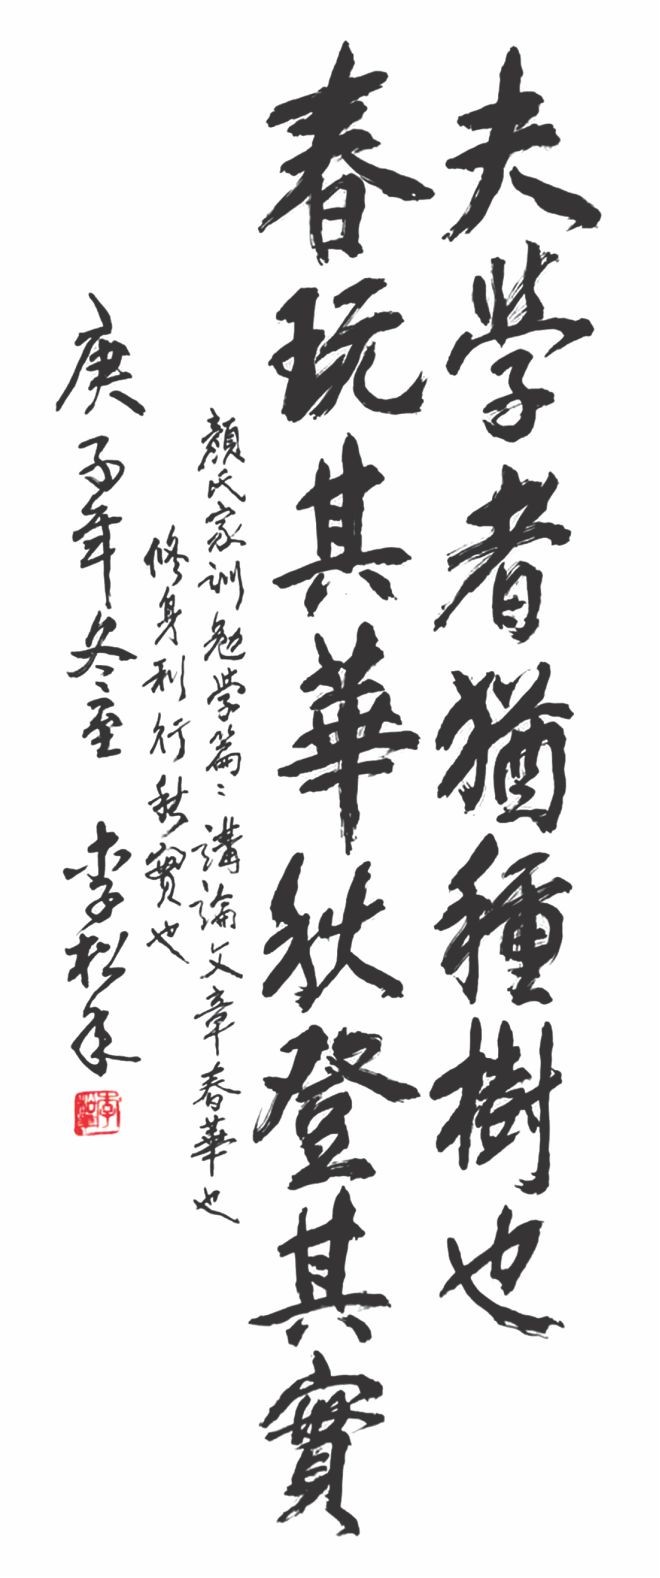 夫學者猶種樹也
春玩其華秋登其實
顏氏家訓勉學篇〻講論文章春華也
修身利行秋實也
庚子年冬至 李松年